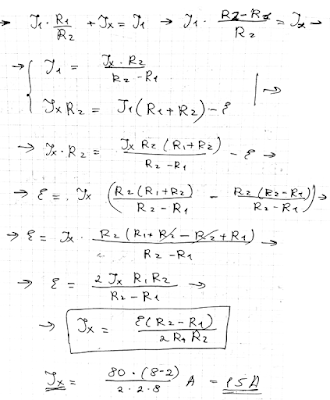 → J₁ · R₁/R₂ + Jx = J₁ → J₁ · (R2-R1)/R₂ = Jx →
→ { J₁ = (Jx · R₂)/(R₂-R₁)
Jx R₂ = J₁(R₁+R₂) - ε | →
→ Jx · R₂ = (Jx R₂ (R₁+R₂))/(R₂-R₁) - ε →
→ ε = Jx ( (R₂(R₁+R₂))/(R₂-R₁) - (R₂(R₂-R₁))/(R₂-R₁) ) →
→ ε = Jx · (R₂(R₁+R₂-R₂+R₁))/(R₂-R₁) →
→ ε = (2 Jx R₁R₂)/(R₂-R₁) →
→ Jx = (ε(R₂-R₁))/(2R₁R₂)
Jx = (80 · (8-2))/(2 · 2 · 8) A = 15A